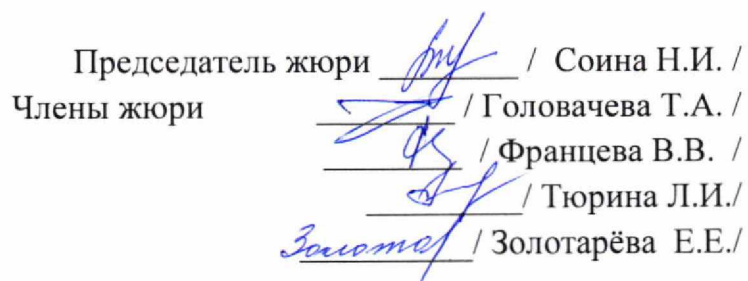 Председатель жюри / Соина Н.И. /
Члены жюри / Головачева Т.А. /
/ Францева В.В. /
/ Тюрина Л.И./
Золотар / Золотарёва Е.Е./